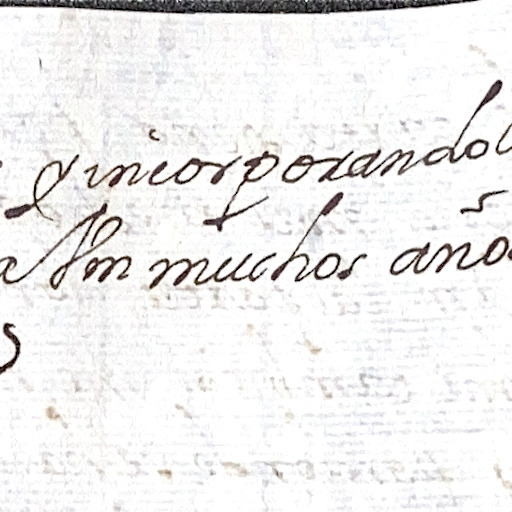 y incorporandol
a Vm muchos años